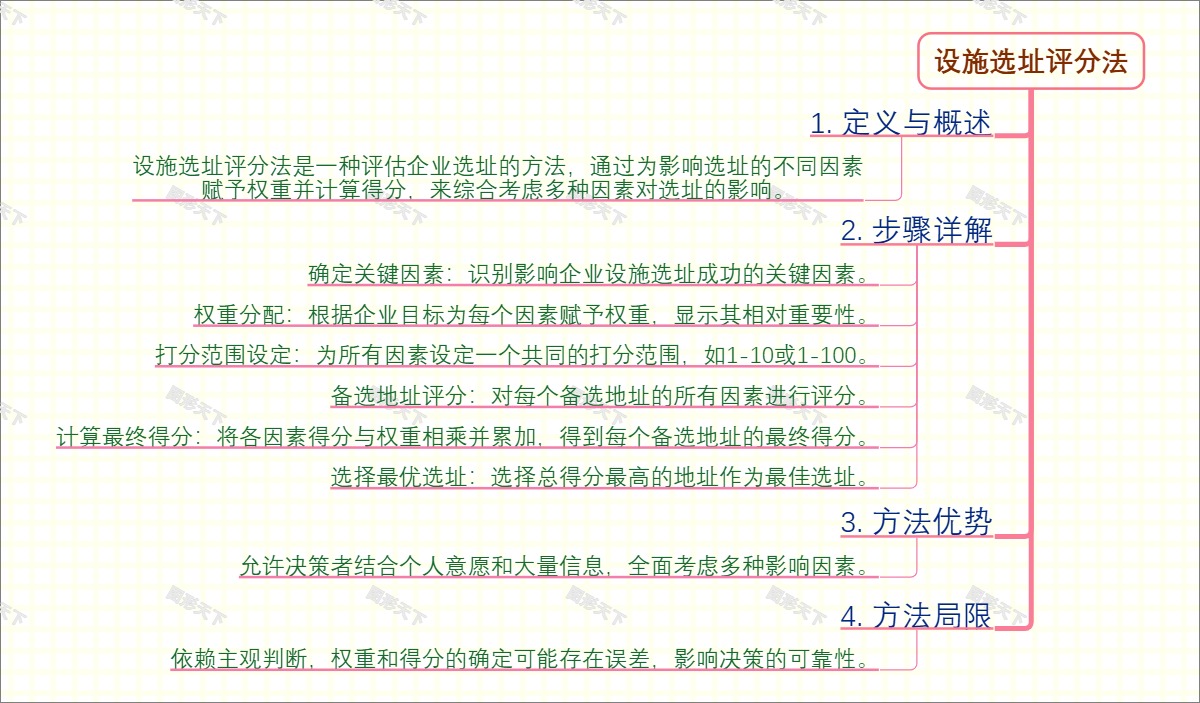 设施选址评分法
1. 定义与概述
设施选址评分法是一种评估企业选址的方法，通过为影响选址的不同因素
赋予权重并计算得分，来综合考虑多种因素对选址的影响。
2. 步骤详解
确定关键因素：识别影响企业设施选址成功的关键因素。
权重分配：根据企业目标为每个因素赋予权重，显示其相对重要性。
打分范围设定：为所有因素设定一个共同的打分范围，如1-10或1-100。
备选地址评分：对每个备选地址的所有因素进行评分。
计算最终得分：将各因素得分与权重相乘并累加，得到每个备选地址的最终得分。
选择最优选址：选择总得分最高的地址作为最佳选址。
3. 方法优势
允许决策者结合个人意愿和大量信息，全面考虑多种影响因素。
4. 方法局限
依赖主观判断，权重和得分的确定可能存在误差，影响决策的可靠性。
图形天下